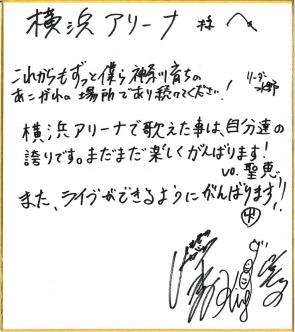 横浜アリーナ 様 へ
これからもずっと僕ら神奈川育ちの
あこがれの場所であり続けてください! リーダー水野
横浜アリーナで歌えた事は、自分達の
誇りです。まだまだ楽しくがんばります!
vo. 聖恵
また、ライブができるようにがんばります!!
山